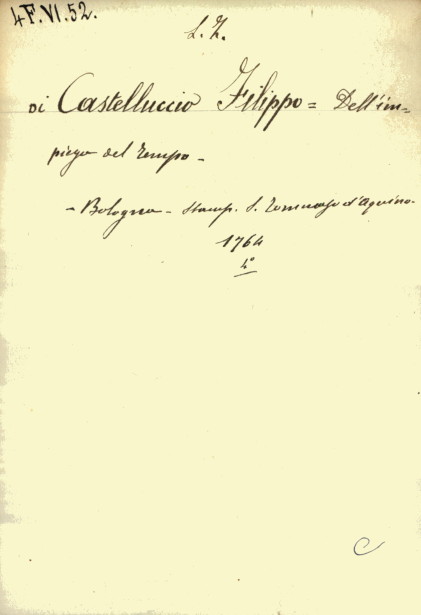 4F.VI.52.
L. Z.
Di Castelluccio Filippo = Dell'im-
piego del Tempo -
- Bologna - Stamp. S. Tommaso d'Aquino.
1764
4°
C